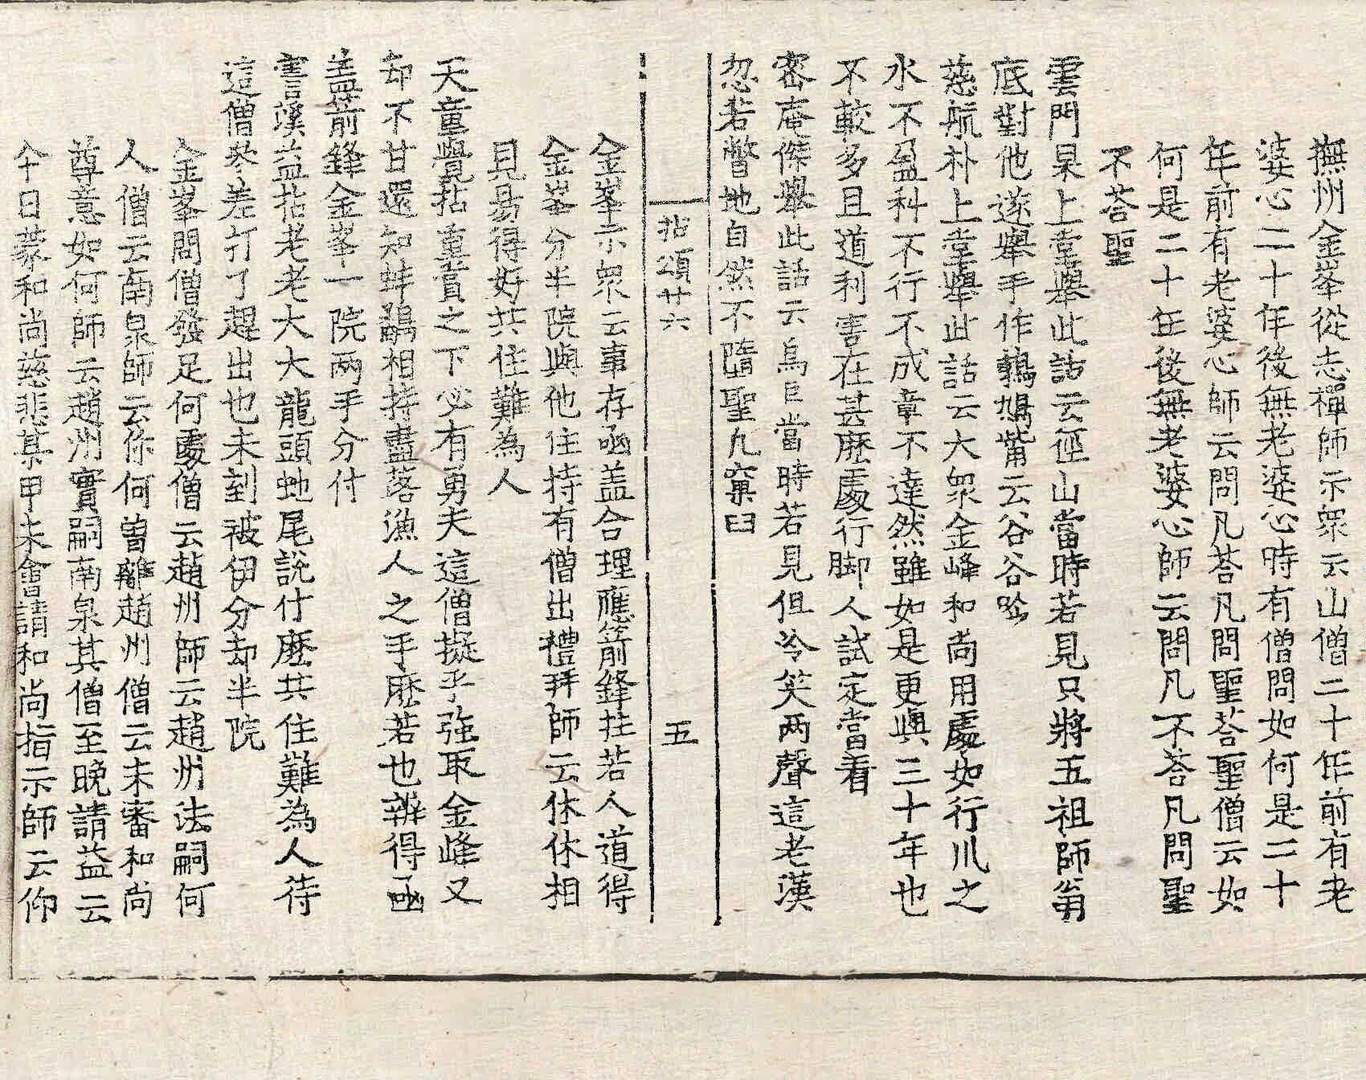 撫州金峯從志禪師示衆云山僧二十年前有老
婆心二十年後無老婆心時有僧問如何是二十
年前有老婆心師云問凡荅凡問聖荅聖僧云如
何是二十年後無老婆心師云問凡不荅凡問聖
不荅聖
雲門杲上堂舉此話云徑山當時若見只將五祖師翁
底對他遂舉手作鵓鳩觜云谷谷呱
慈航朴上堂舉此話云大衆金峰和尚用處如行川之
水不盈科不行不成章不達然雖如是更與三十年也
不較多且道利害在甚麽處行脚人試定當看
密庵傑舉此話云烏巨當時若見但冷笑兩聲這老漢
忽若瞥地自然不墮聖凡窠臼
拈頌廿六
五
金峯示衆云事存凾盖合理應箭鋒拄若人道得
金峯分半院與他住持有僧出禮拜師云休休相
見易得好共住難為人
天童覺拈重賞之下必有勇夫這僧擬乎強取金峰又
却不甘還知蚌鷸相持盡落漁人之手麽若也辨得凾
盖箭鋒金峯一院兩手分付
霅溪益拈老老大大龍頭虵尾說什麽共住難為人待
這僧叅差打了趕出也未到被伊分却半院
金峯問僧發足何處僧云趙州師云趙州法嗣何
人僧云南泉師云你何曾離趙州僧云未審和尚
尊意如何師云趙州實嗣南泉其僧至晚請益云
今日蒙和尚慈悲某甲未會請和尚指示師云仰